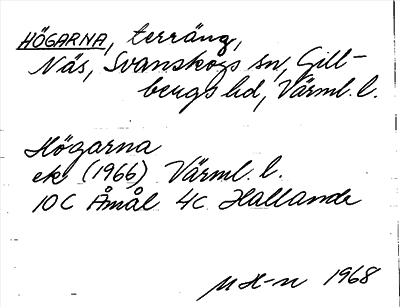 HÖGARNA, terräng,
Näs, Svanskogs sn, Gill-
bergs hd, Värml. l.
Högarna
ek (1966) Värml. l.
10C Åmål 4C Hallanda
M H-n 1968